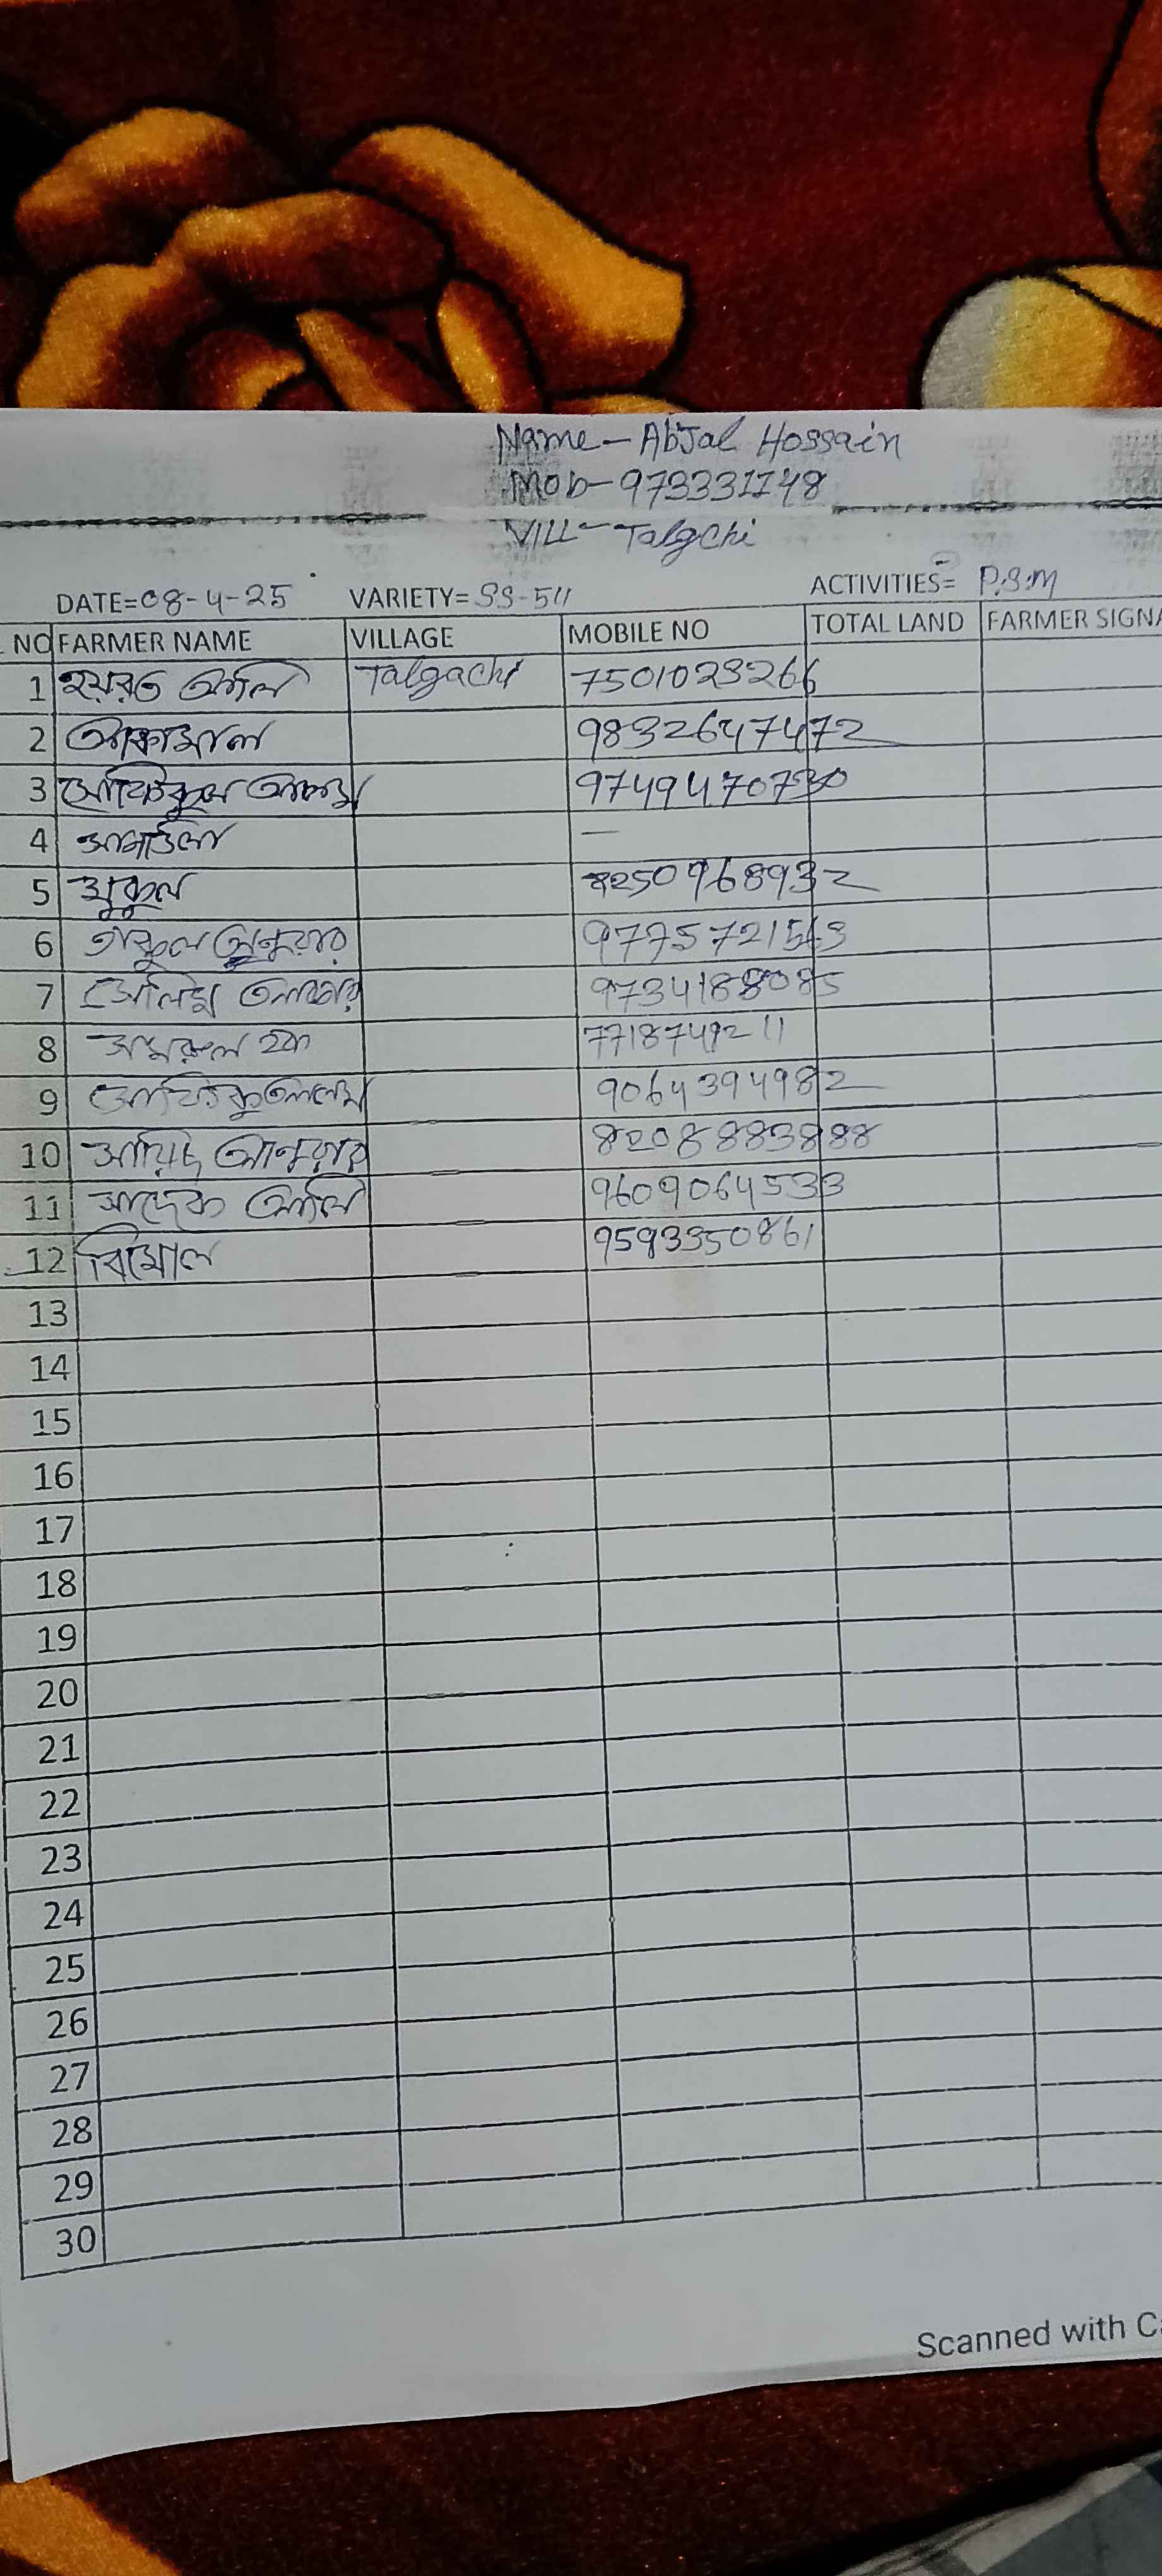 Name - Abjal Hossain
Mob - 973331148
VILL - Talgchi
DATE=08-4-25 VARIETY= SS-511 ACTIVITIES= P.S.M
NO FARMER NAME VILLAGE MOBILE NO TOTAL LAND FARMER SIGNA
1 হযরত আলি Talgachi 7501023266
2 9832647472
3 9749470730
4 —
5 মুকুল 8250968932
6 9775721563
7 9734188085
8 হক 7718749211
9 9064394982
10 8208883888
11 সাদেক আলি 9609064533
12 বিমোল 9593350861
13
14
15
16
17
18
19
20
21
22
23
24
25
26
27
28
29
30
Scanned with Ca